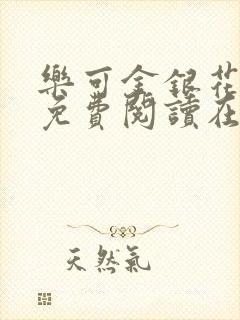 樂可金銀花
免費閱讀在
天然氣